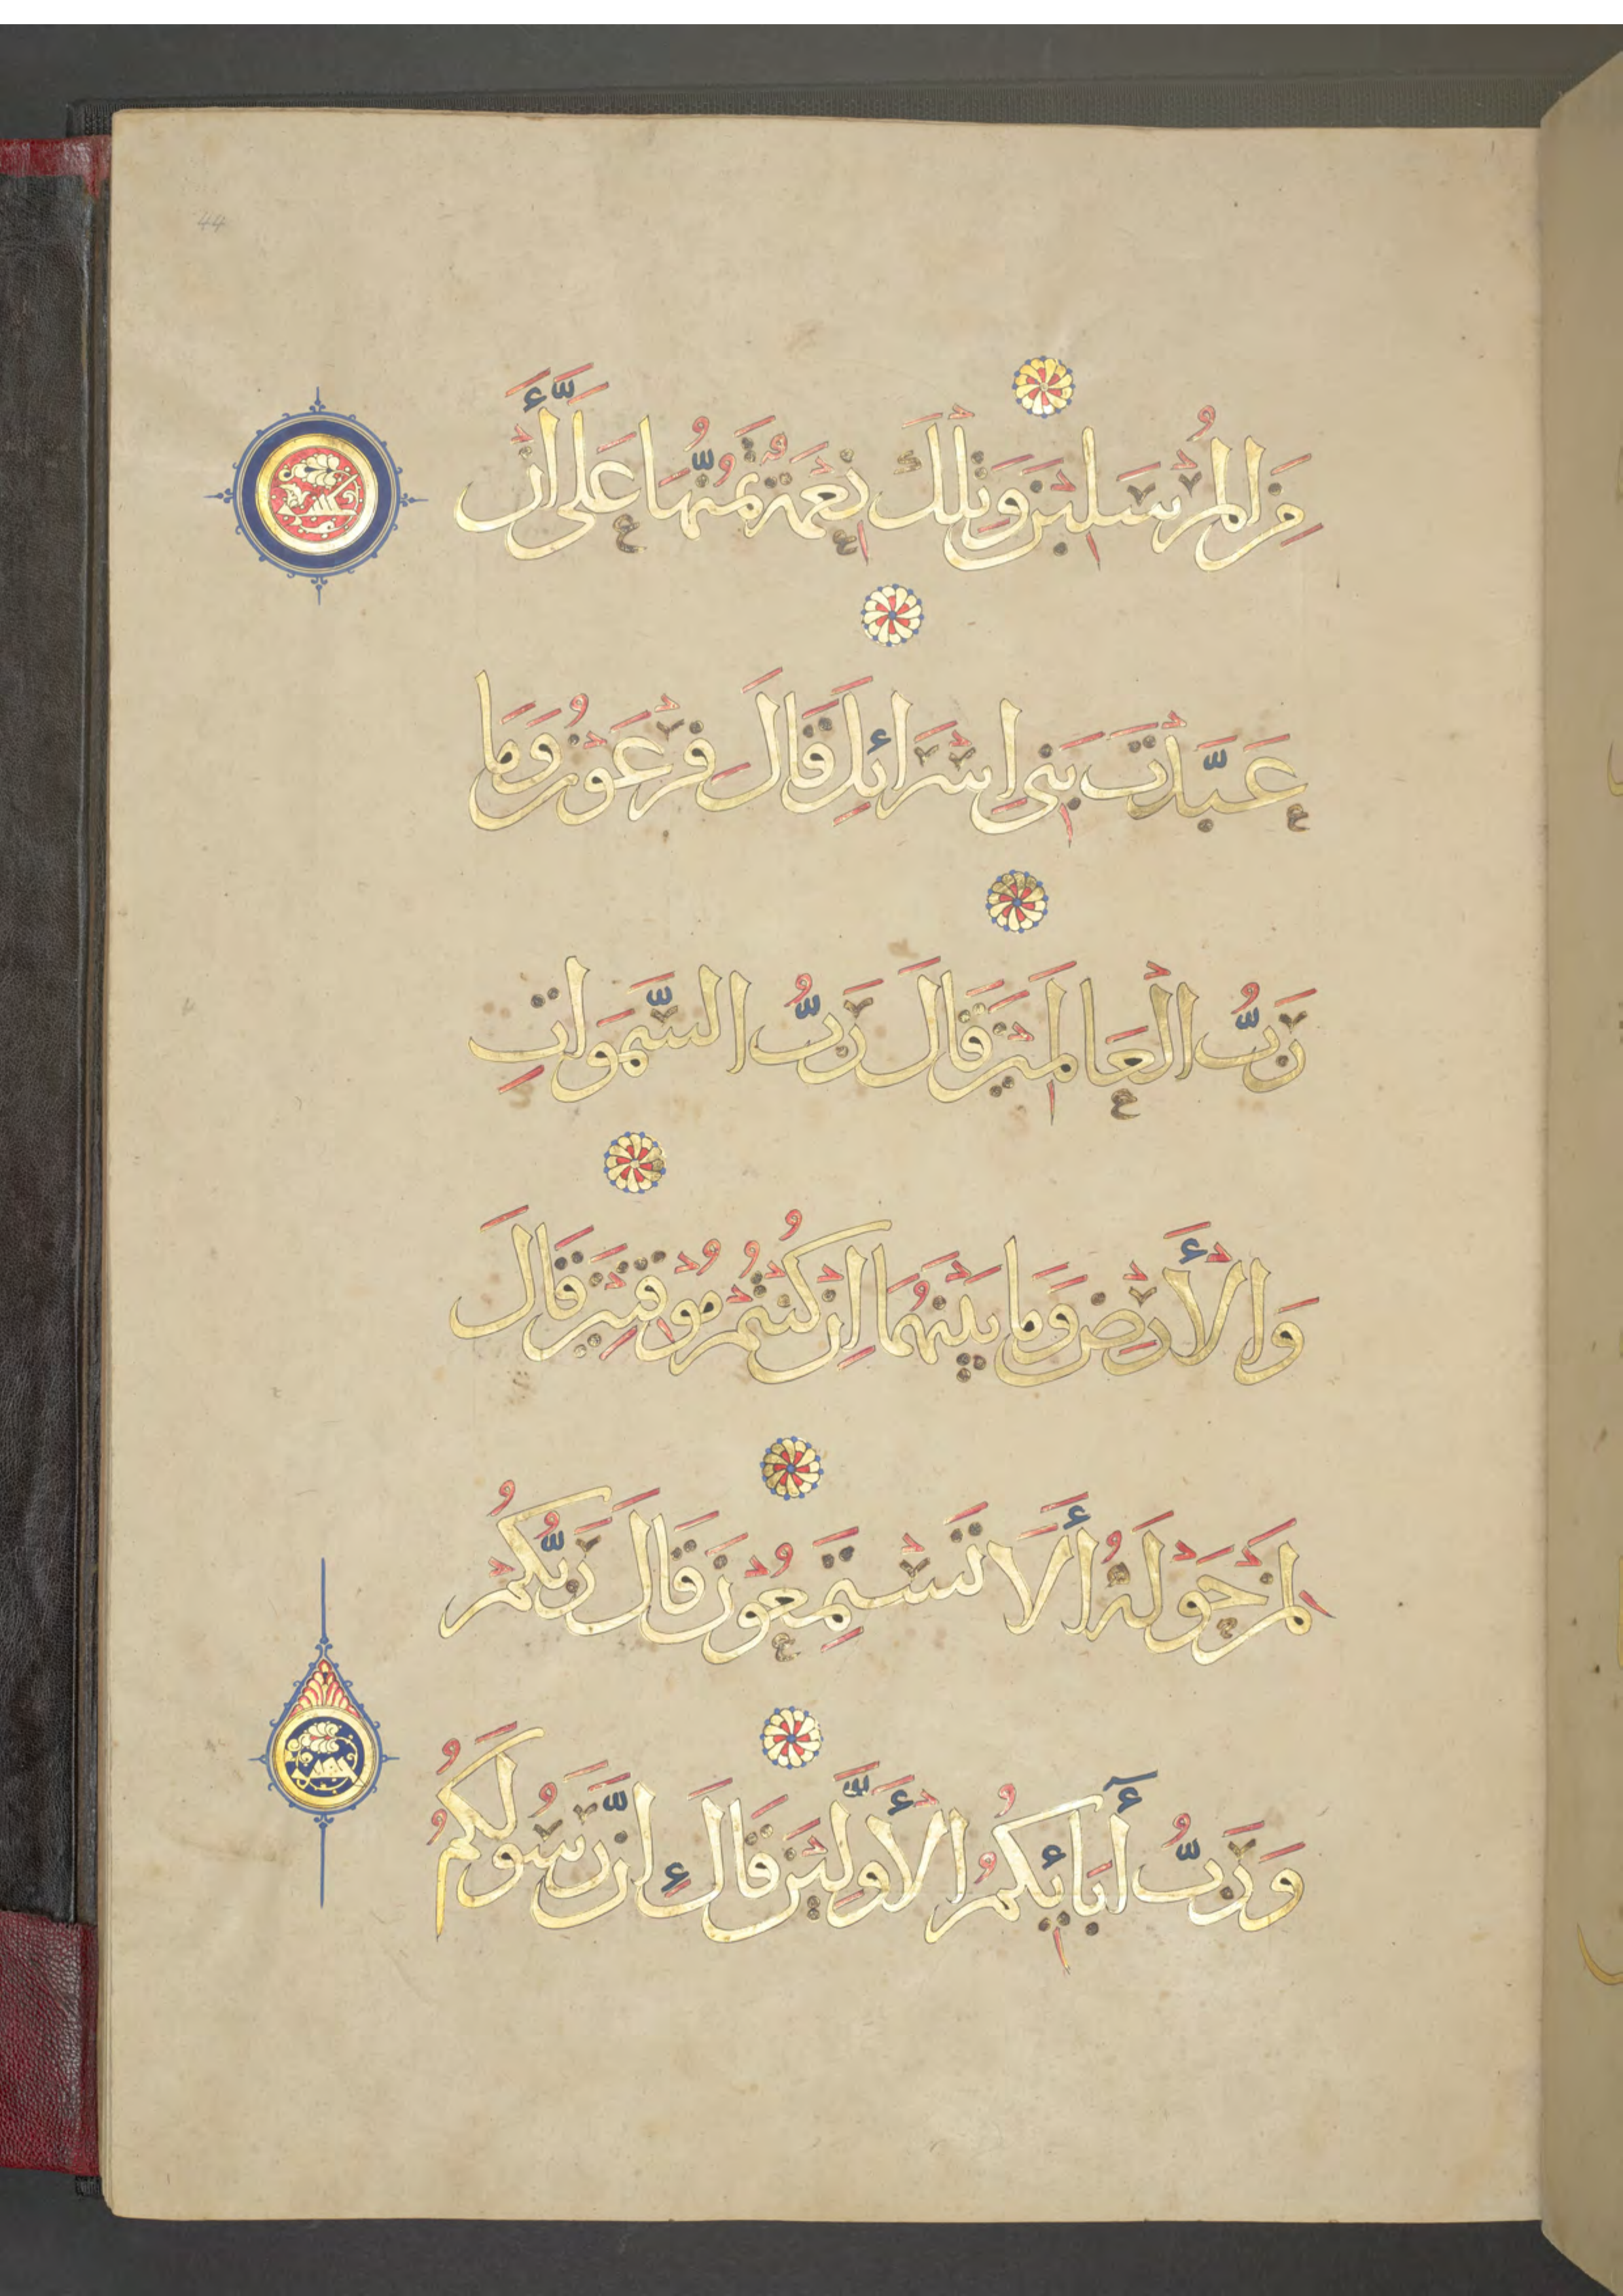 44
مِنَ الْمُرْسَلِينَ وَتِلْكَ نِعْمَةٌ تَمُنُّهَا عَلَيَّ أَنْ
عَبَّدْتَ بَنِي إِسْرَائِلَ قَالَ فِرْعَوْنُ وَمَا
رَبُّ الْعَالَمِينَ قَالَ رَبُّ السَّمَوَاتِ
وَالْأَرْضِ وَمَا بَيْنَهُمَا إِنْ كُنْتُمْ مُوقِنِينَ قَالَ
لِمَنْ حَوْلَهُ أَلَا تَسْتَمِعُونَ قَالَ رَبُّكُمْ
وَرَبُّ أَبَائِكُمُ الْأَوَّلِينَ قَالَ إِنَّ رَسُولَكُمُ